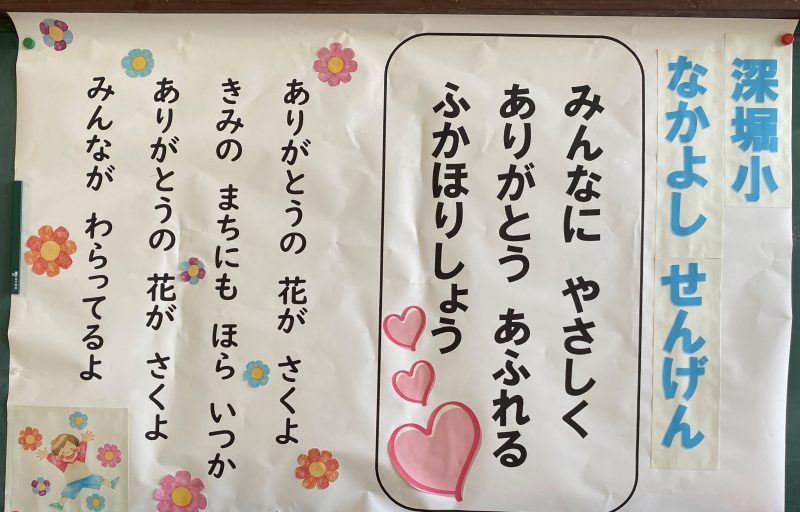 深堀小
なかよし せんげん
みんなに やさしく
ありがとう あふれる
ふかほりしょう
ありがとうの 花が さくよ
きみの まちにも ほら いつか
ありがとうの 花が さくよ
みんなが わらってるよ